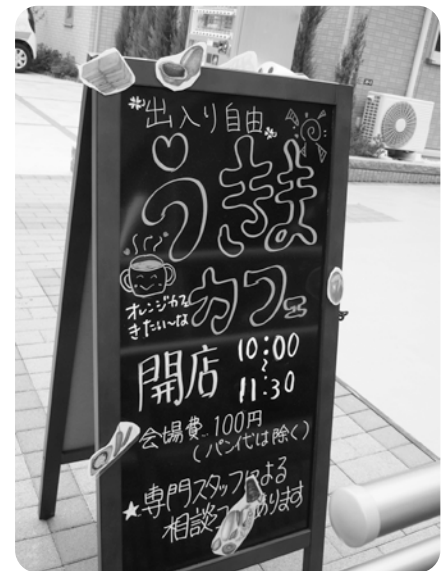 出入り自由
うきま
オレンジカフェ
きたい〜な
カフェ
開店 10:00
〜
11:30
会場費‥100円
(パン代は除く)
★専門スタッフによる
相談コーナーあります